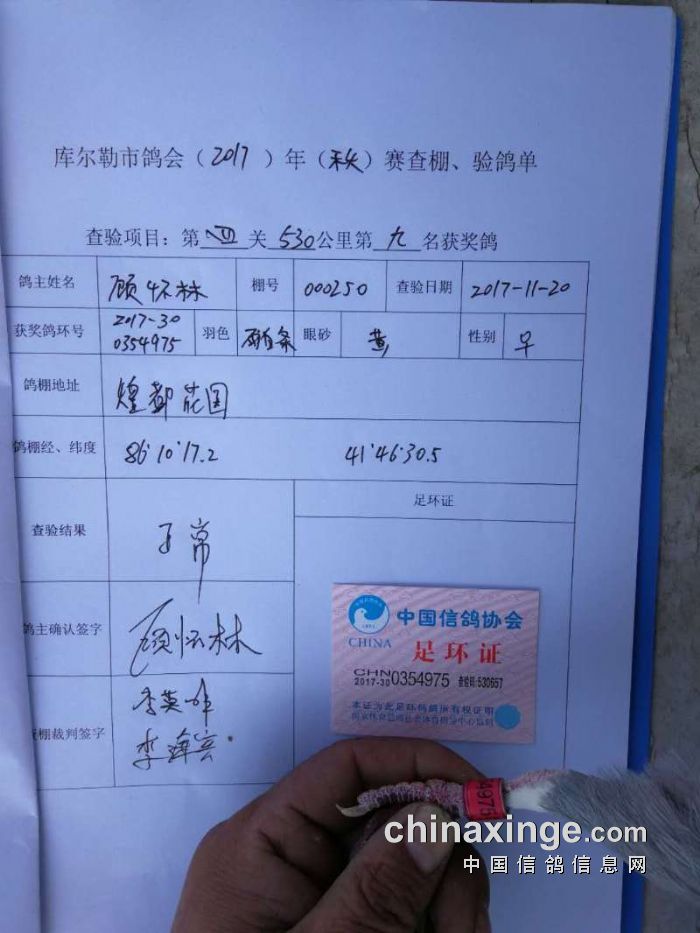 库尔勒市鸽会（2017）年（秋）赛查棚、验鸽单
查验项目：第四关530公里第九名获奖鸽
鸽主姓名 顾怀林 棚号 000250 查验日期 2017-11-20
获奖鸽环号 2017-30 0354975 羽色 雨白条 眼砂 黄 性别 早
鸽棚地址 煌都花园
鸽棚经、纬度 86°10'17.2 41°46'30.5
查验结果 正常
足环证
鸽主确认签字 顾怀林
查棚裁判签字 李英
李海宾
中国信鸽协会
CHINA
足环证
CHN
2017-30 0354975 查验码:530657
本证为此足环鸽鸽所有权证明
4975
chinaxinge.com
中国信鸽信息网